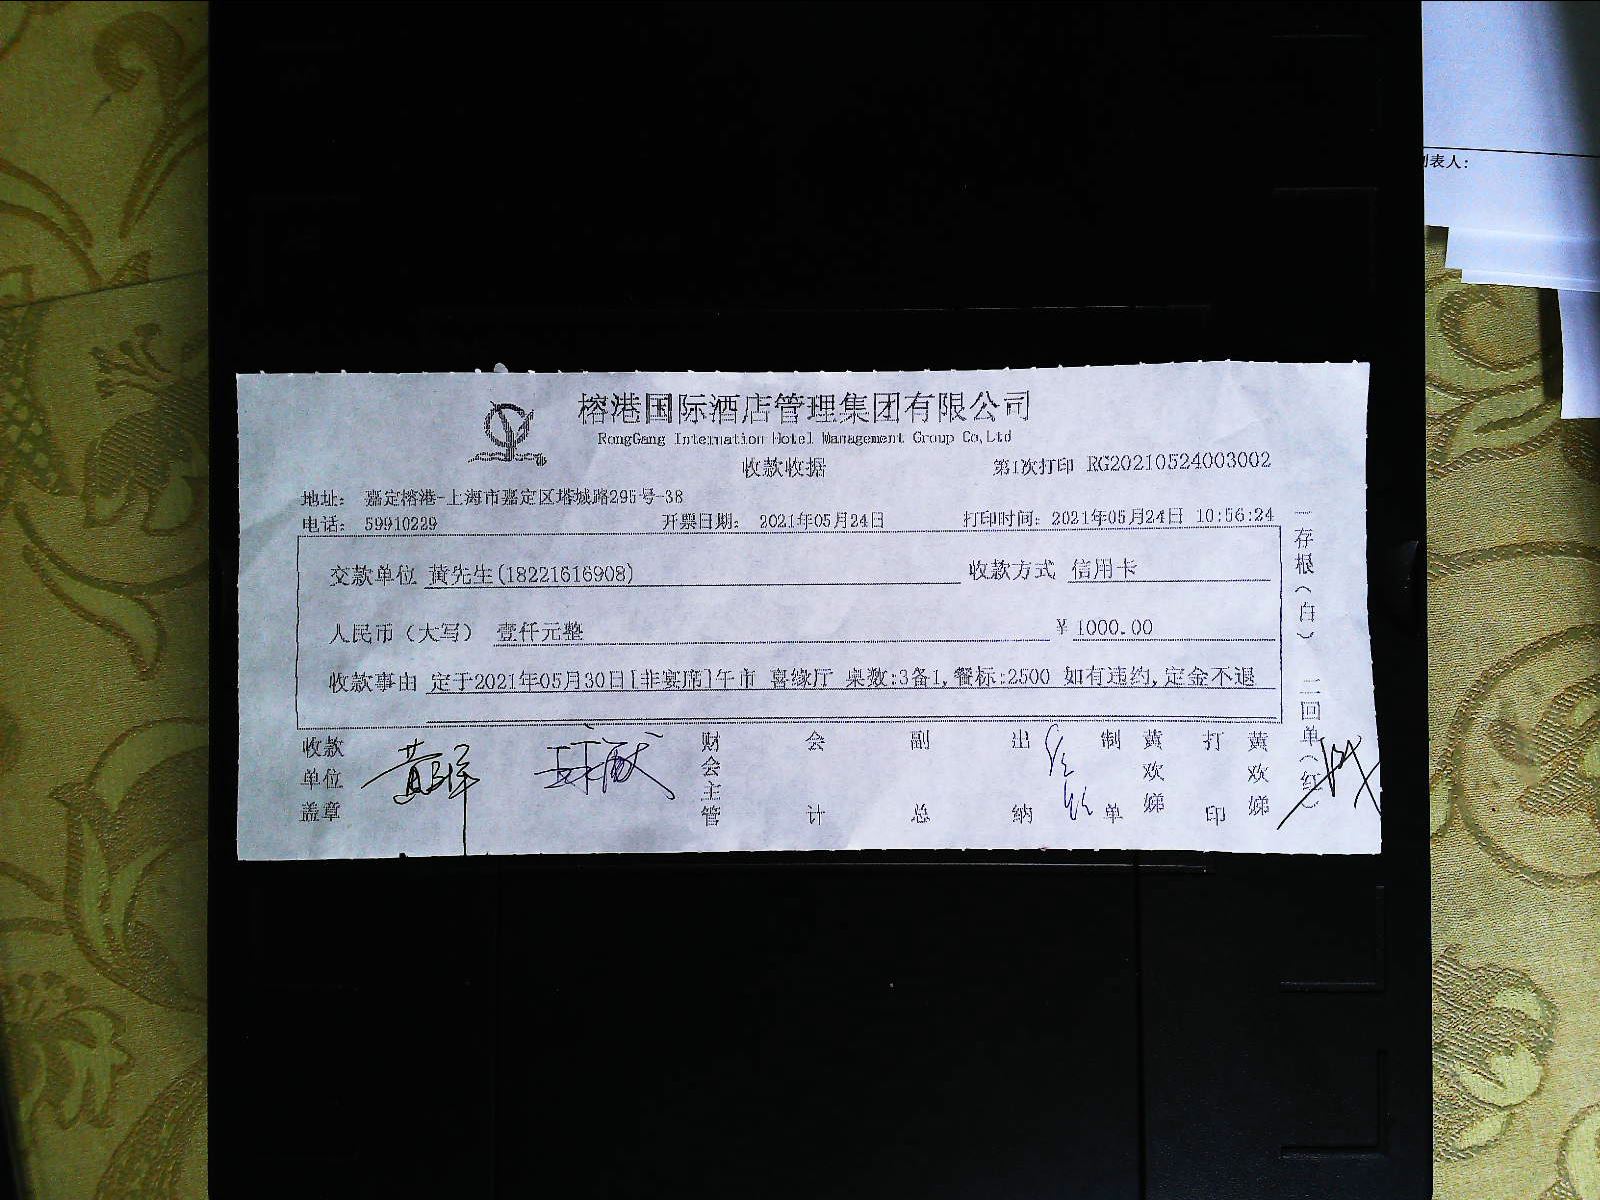 制表人:
榕港国际酒店管理集团有限公司
RongGang Internation Hotel Management Group Co,Ltd
收款收据
第1次打印 RG20210524003002
地址: 嘉定榕港-上海市嘉定区塔城路295号-38
电话: 59910229 开票日期: 2021年05月24日 打印时间: 2021年05月24日 10:56:24
交款单位 黄先生(18221616908) 收款方式 信用卡
人民币(大写) 壹仟元整 ¥ 1000.00
收款事由 定于2021年05月30日[非宴席]午市 喜缘厅 桌数:3备1,餐标:2500 如有违约,定金不退
收款单位盖章
财会主管
会计
副总
出纳
制单
黄欢娣
打印
黄欢娣
一存根(白) 二回单(红)